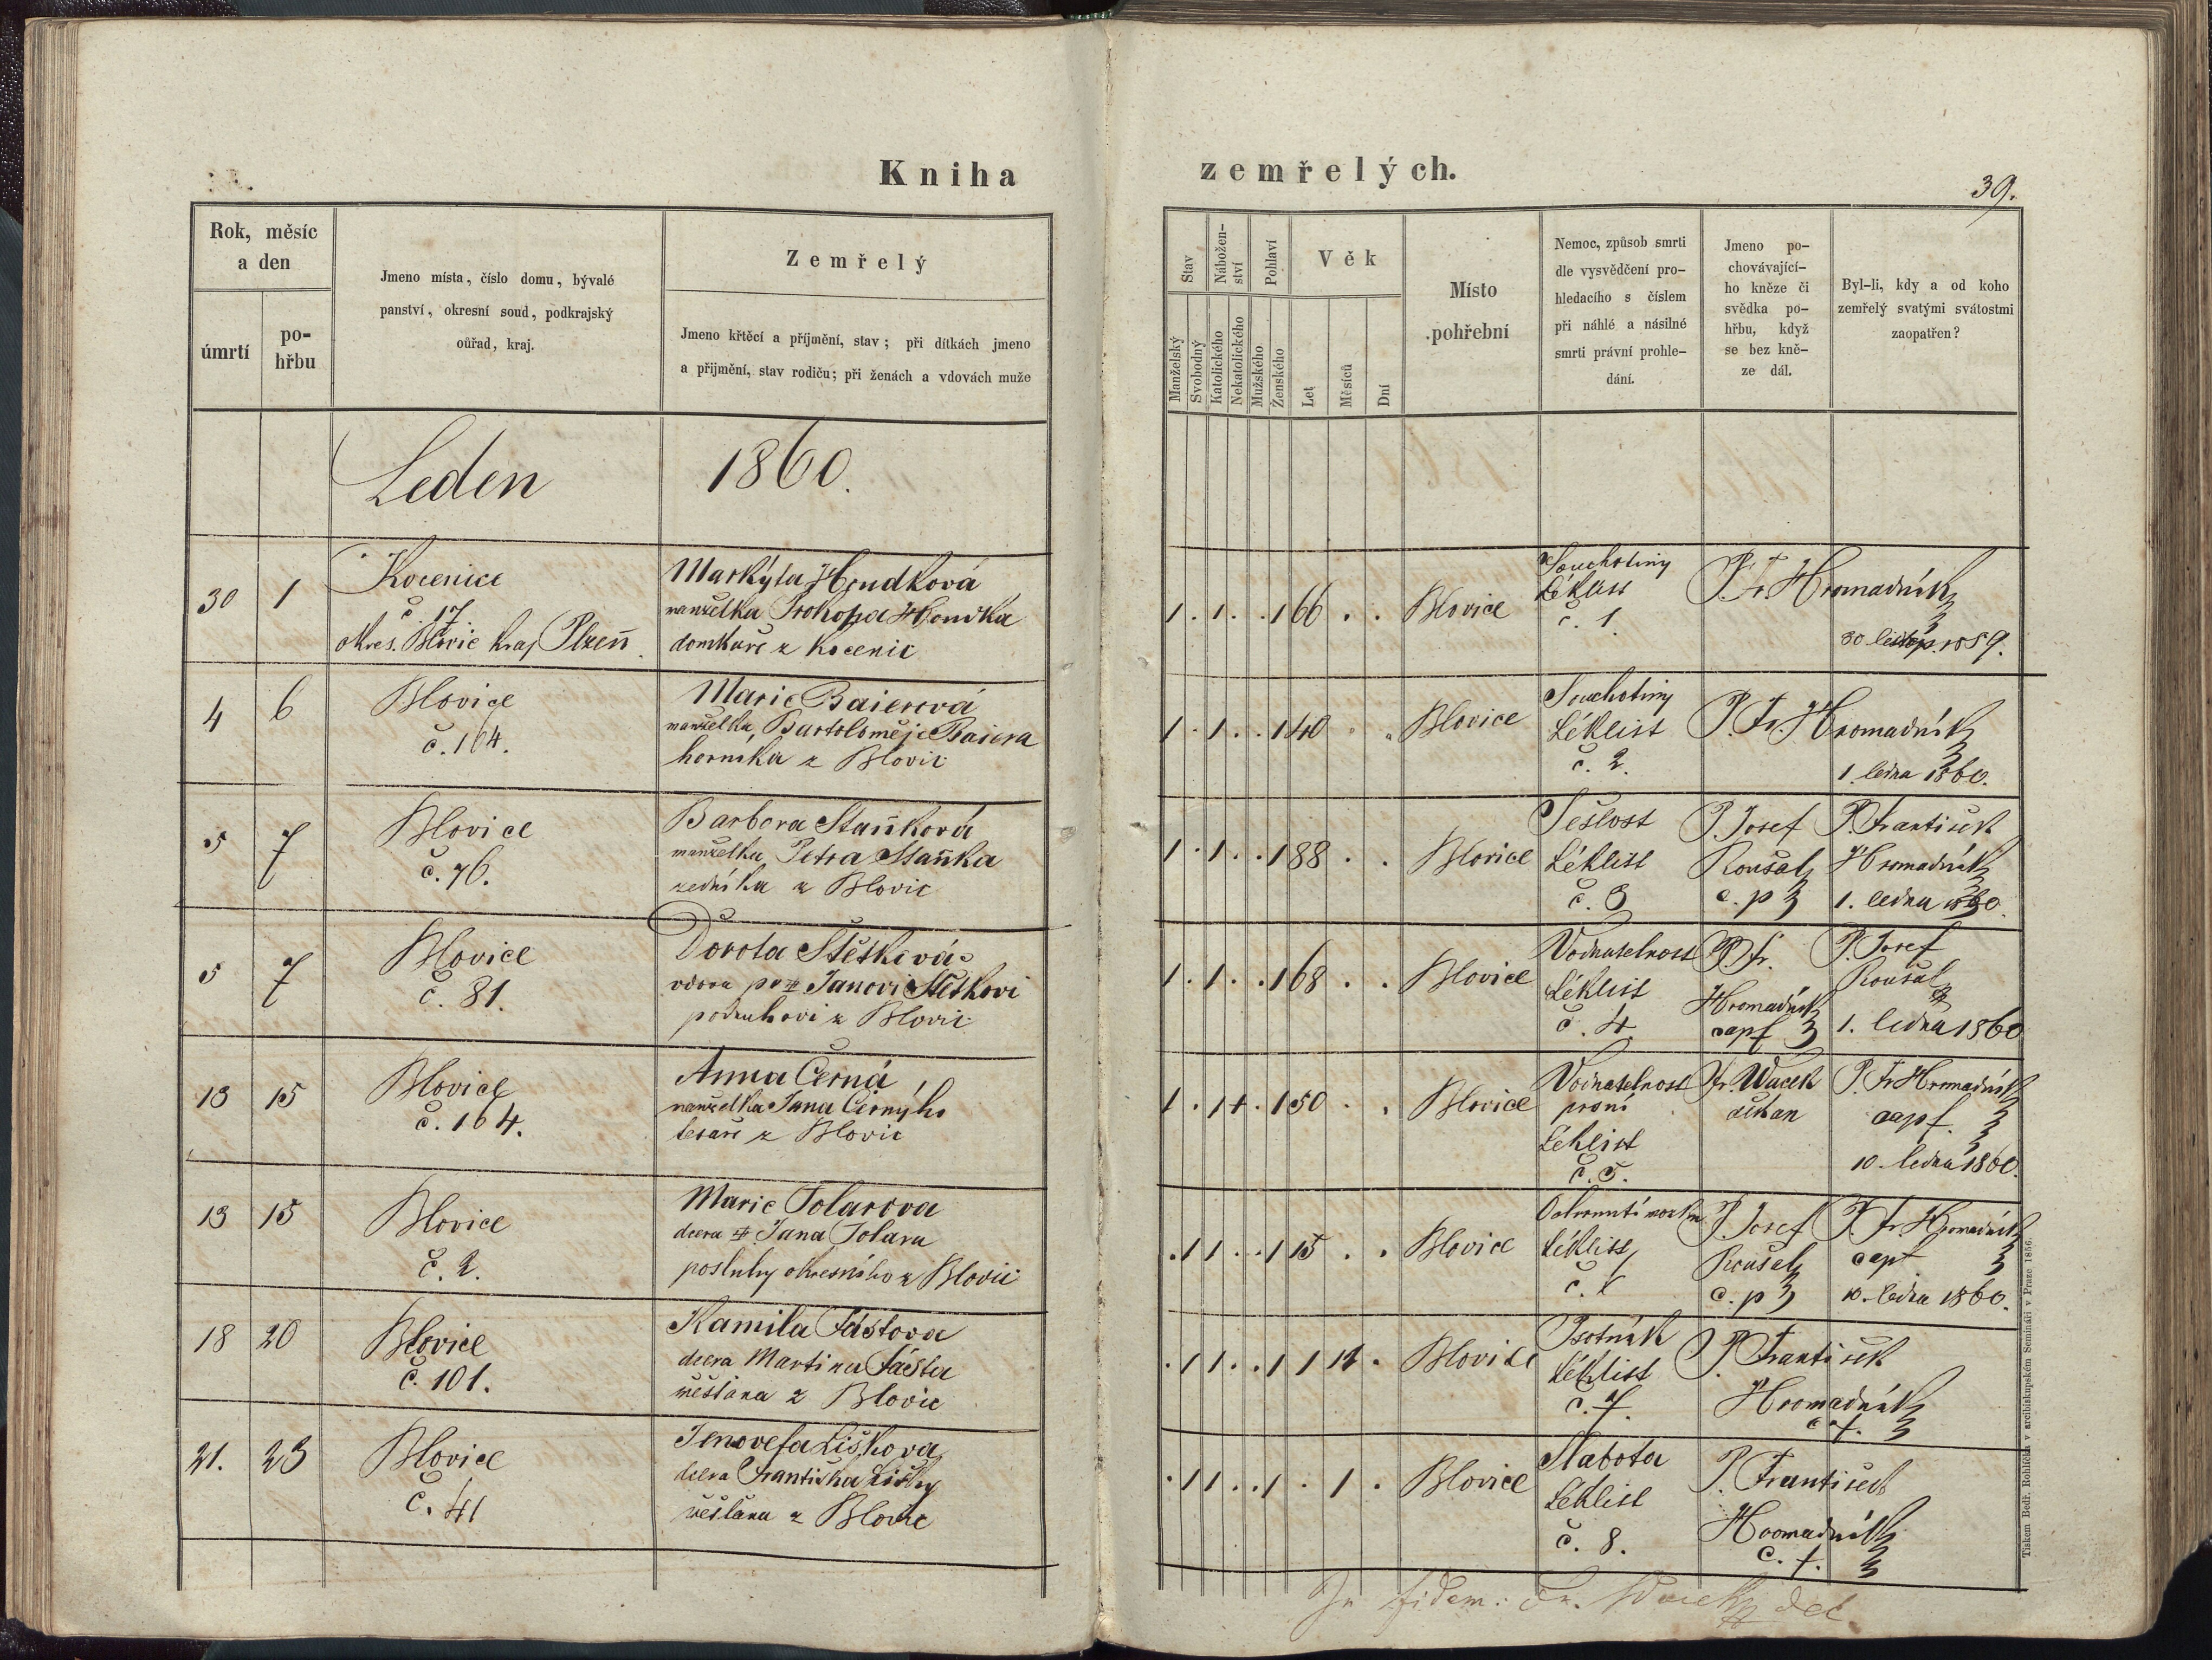 Kniha zemřelých.
39.
Rok, měsíc
a den
úmrtí
po-
hřbu
Jmeno místa, číslo domu, bývalé
panství, okresní soud, podkrajský
oúřad, kraj.
Zemřelý
Jmeno křtěcí a příjmění, stav; při dítkách jmeno
a přijmění, stav rodičů; při ženách a vdovách muže
Stav
Manželský
Svobodný
Nábožen-
ství
Katolického
Nekatolického
Pohlaví
Mužského
Ženského
Věk
Let
Měsíců
Dní
Místo
pohřební
Nemoc, způsob smrti
dle vysvědčení pro-
hledacího s číslem
při náhlé a násilné
smrti právní prohle-
dání.
Jmeno po-
chovávající-
ho kněze či
svědka po-
hřbu, když
se bez kně-
ze dál.
Byl-li, kdy a od koho
zemřelý svatými svátostmi
zaopatřen?
Leden 1860.
30 1
Kocenice
č. 17.
okres. Blovic kraj Plzeň
Markýta Houdková
manželka Prokopa Houdka
domkáře z Kocenic
1 . 1 . . 1 66 . . Blovice
Souchotiny
Léklist
č. 1.
P. Fr. Hromadník
30 listop. 1859.
4 6
Blovice
č. 164.
Marie Baierová
manželka Bartoloměje Baiera
horníka z Blovic
1 . 1 . . 1 40 . . Blovice
Souchotiny
Léklist
č. 2.
P. Fr. Hromadník
1. ledna 1860.
5 7
Blovice
č. 76.
Barbora Staňková
manželka Petra Staňka
zedníka z Blovic
1 . 1 . . 1 88 . . Blovice
Sešlost
Léklist
č. 3
P. Josef
Roušal
c. p
P. František
Hromadník
1. ledna 1860.
5 7
Blovice
č. 81.
Dorota Štětková
vdova po Janovi Štětkovi
podruhovi z Blovic
1 . 1 . . 1 68 . . Blovice
Vodnatelnost
Léklist
č. 4
P. Fr.
Hromadník
cap
P. Josef
Roušal
1. ledna 1860
13 15
Blovice
č. 164.
Anna Černá
manželka Jana Černýho
tesaře z Blovic
1 . 1 . . 1 50 . . Blovice
Vodnatelnost
prsní
Léklist
č. 5.
Fr. Wacek
děkan
P. Fr. Hromadník
cap.
10. ledna 1860.
13 15
Blovice
č. 2.
Marie Tolarova
dcera Jana Tolara
posluhy okresního z Blovic
. 1 1 . . 1 15 . . Blovice
Ochrnutí mozku
Léklist
č.
P. Josef
Roušal
c. p
P. Fr. Hromadník
cap
10. ledna 1860.
18 20
Blovice
č. 101.
Kamila Fástova
dcera Martina Fásta
měšťana z Blovic
. 1 1 . . 1 1 11 . Blovice
Psotník
Léklist
č. 7.
P. František
Hromadník
21. 23
Blovice
č. 41
Jenovefa Liškova
dcera Františka Lišky
měšťana z Blovic
. 1 1 . . 1 . 1 . Blovice
Slabota
Léklist
č. 8.
P. František
Hromadník
In fidem: Fr. Wacek děk.
Tiskem Bedř. Rohlíčka v arcibiskupském Semináři v Praze 1856.